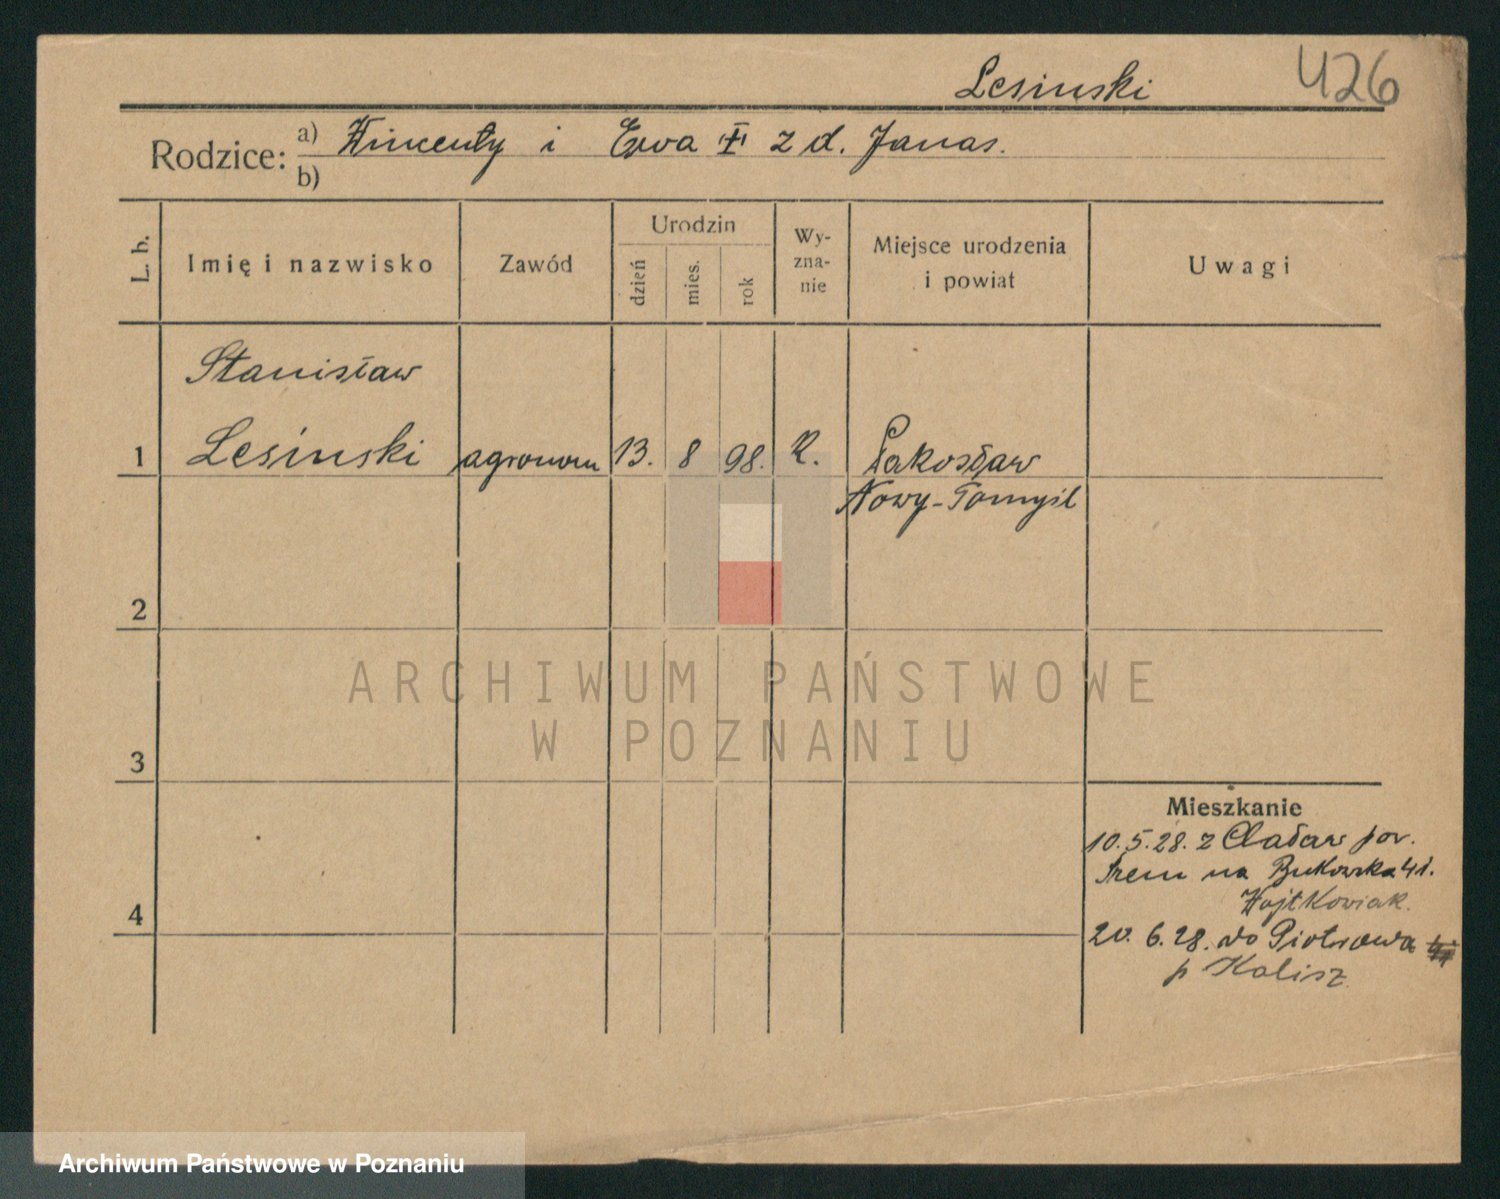 Lesinski 426
Rodzice: a) Wincenty i Ewa z d. Janas.
b)
L. b. Imię i nazwisko Zawód Urodzin dzień mies. rok Wy-zna-nie Miejsce urodzenia i powiat Uwagi
Stanisław
1 Lesinski agronom 13. 8 98. R. Pakosław
Nowy-Tomyśl
2
ARCHIWUM PAŃSTWOWE
W POZNANIU
3
Mieszkanie
10.5.28. z pow.
Śrem na Bukowska 41.
Wojtkowiak.
4
20. 6. 28. do Piotrowa
p Kalisz
Archiwum Państwowe w Poznaniu